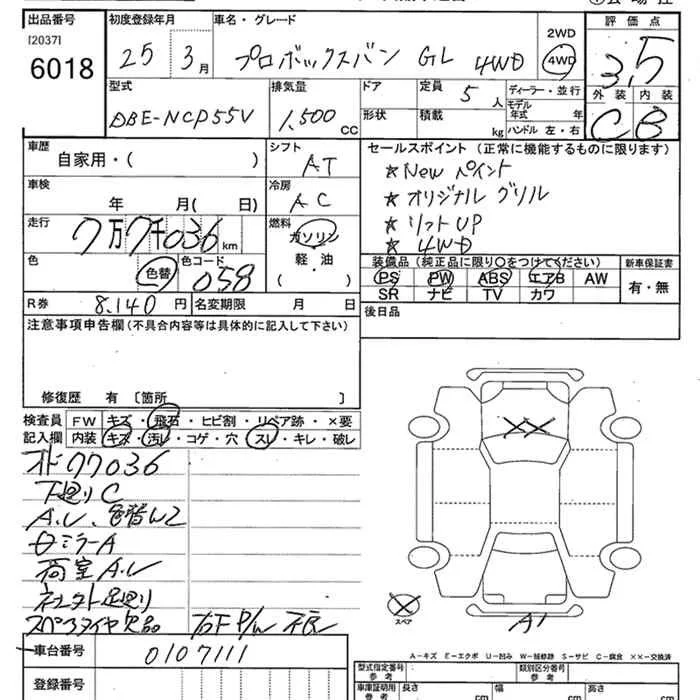 出品番号 初度登録年月 車名・グレード 評価点
[2037]
6018
25 3月 プロボックスバン GL 4WD
2WD
4WD
3,5
型式 排気量 ドア 定員 5人 ディーラー・並行
外装 内装
DBE-NCP55V 1,500cc 形状 積載 kg モデル年式 年
ハンドル 左・右
C B
車歴 シフト セールスポイント (正常に機能するものに限ります)
自家用・( ) AT
★New ペイント
車検 冷房
★オリジナル グリル
年 月( 日) AC
★リフトUP
走行 燃料
★4WD
7万7千036km ガソリン
軽・油
( )
装備品 (純正品に限り○をつけてください) 新車保証書
色 色替 色コード 058
PS PW ABS エアB AW 有・無
SR ナビ TV カワ
R券 8,140円 名変期限 月 日
後日品
注意事項申告欄(不具合内容等は具体的に記入して下さい)
修復歴 有 〔箇所 〕
検査員 FW キズ・飛石・ヒビ割・リペア跡・×要
記入欄 内装 キズ・汚レ・コゲ・穴・スレ・キレ・破レ
オド77036
下廻りC
A.U、色替W2
ミラーA
荷室A.U
足廻り
スペアタイヤ欠品 右F P/W 不良
××
スペア
A1
A-キズ E-エクボ U-凹み W-補修跡 S-サビ C-腐食 ××-交換済
車台番号 0107111
型式指定番号 類別区分番号
参考 参考
登録番号
車庫証明用 長さ 幅 高さ
参考 cm cm cm